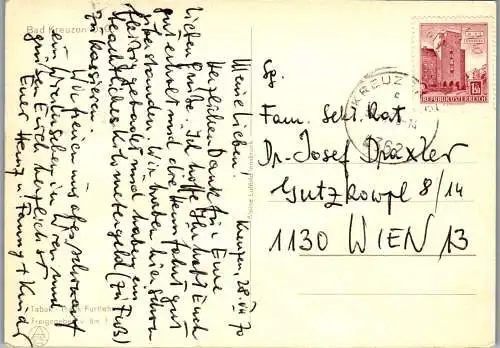 Bad Kreuzen O.Ö.
Kreuzen, 28.VII 70
Meine Lieben!
Herzlichen Dank für Eure
lieben Grüße. Ich hoffe Ihr habt Euch
gut erholt und die Heimfahrt gut
überstanden. Wir haben hier schon
fleißig gebadet und haben ein
beachtliches Kilometergeld (zu Fuß)
zu kassieren.
Wir freuen uns auf
ein Wiedersehen in Wien und
grüßen Euch herzlichst
Eure Heinz u. Fanny + Kinder
Tabak -
Freigegeben v. Bm. f.
Fam. Sekt. Rat
Dr. Josef Draxler
Gutzkowpl 8/14
1130 WIEN 13
REPUBLIK ÖSTERREICH
KREUZEN
4362